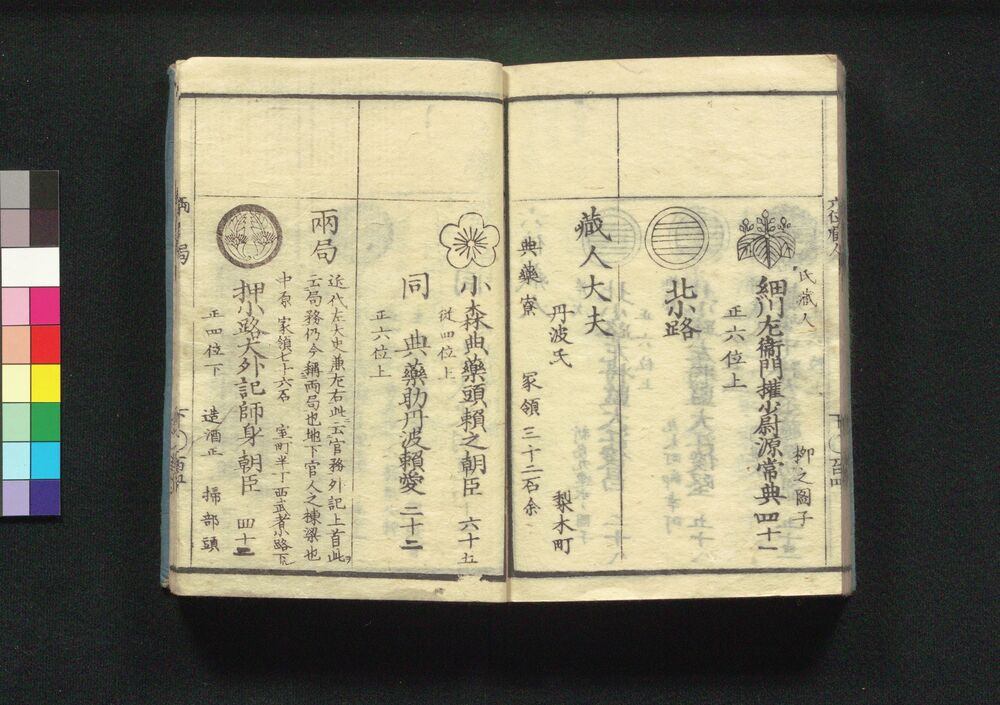 氏蔵人
柳之圖子
細川左衞門權少尉源常典 四十一
正六位上
北小路
藏人大夫
丹波氏 梨木町
典藥寮 冢領三十二石余
小森典藥頭頼之朝臣 六十五
従四位上
同 典藥助丹波頼愛 二十二
正六位上
兩局
近代左大史兼左右此云官務外記上首此ヲ
云局務仍今稱兩局也地下官人之棟梁也
中原 家領七十六石 室町半丁西武者小路下
押小路大外記師身朝臣 四十二
正四位下 造酒正 掃部頭